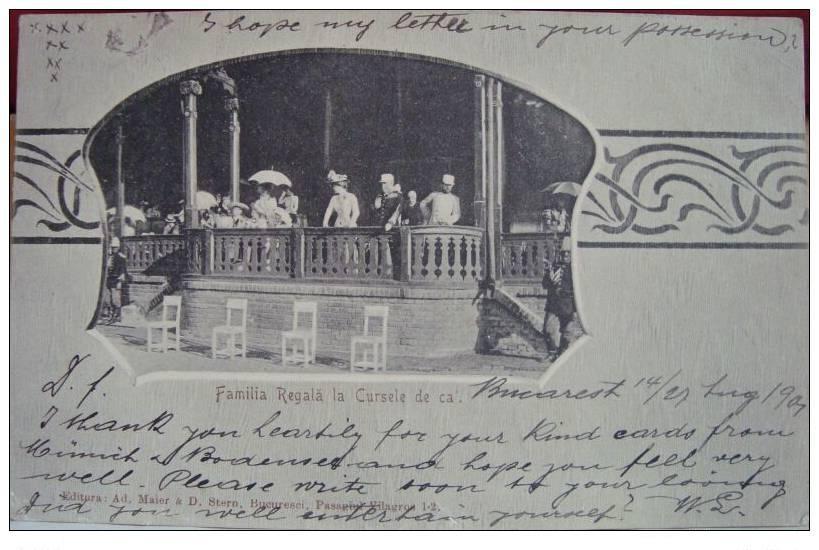 I hope my letter in your possession,?
Familia Regală la Cursele de ca'.
Bucarest 14/27 Aug 190
D. f.
I thank you heartily for your kind cards from
Münich & Bodensee and hope you feel very
well. Please write soon to your loving
W. E.
Editura: Ad. Maier & D. Stern, Bucuresci, Pasagiul Vilagros 1-2.
Did you well entertain yourself?